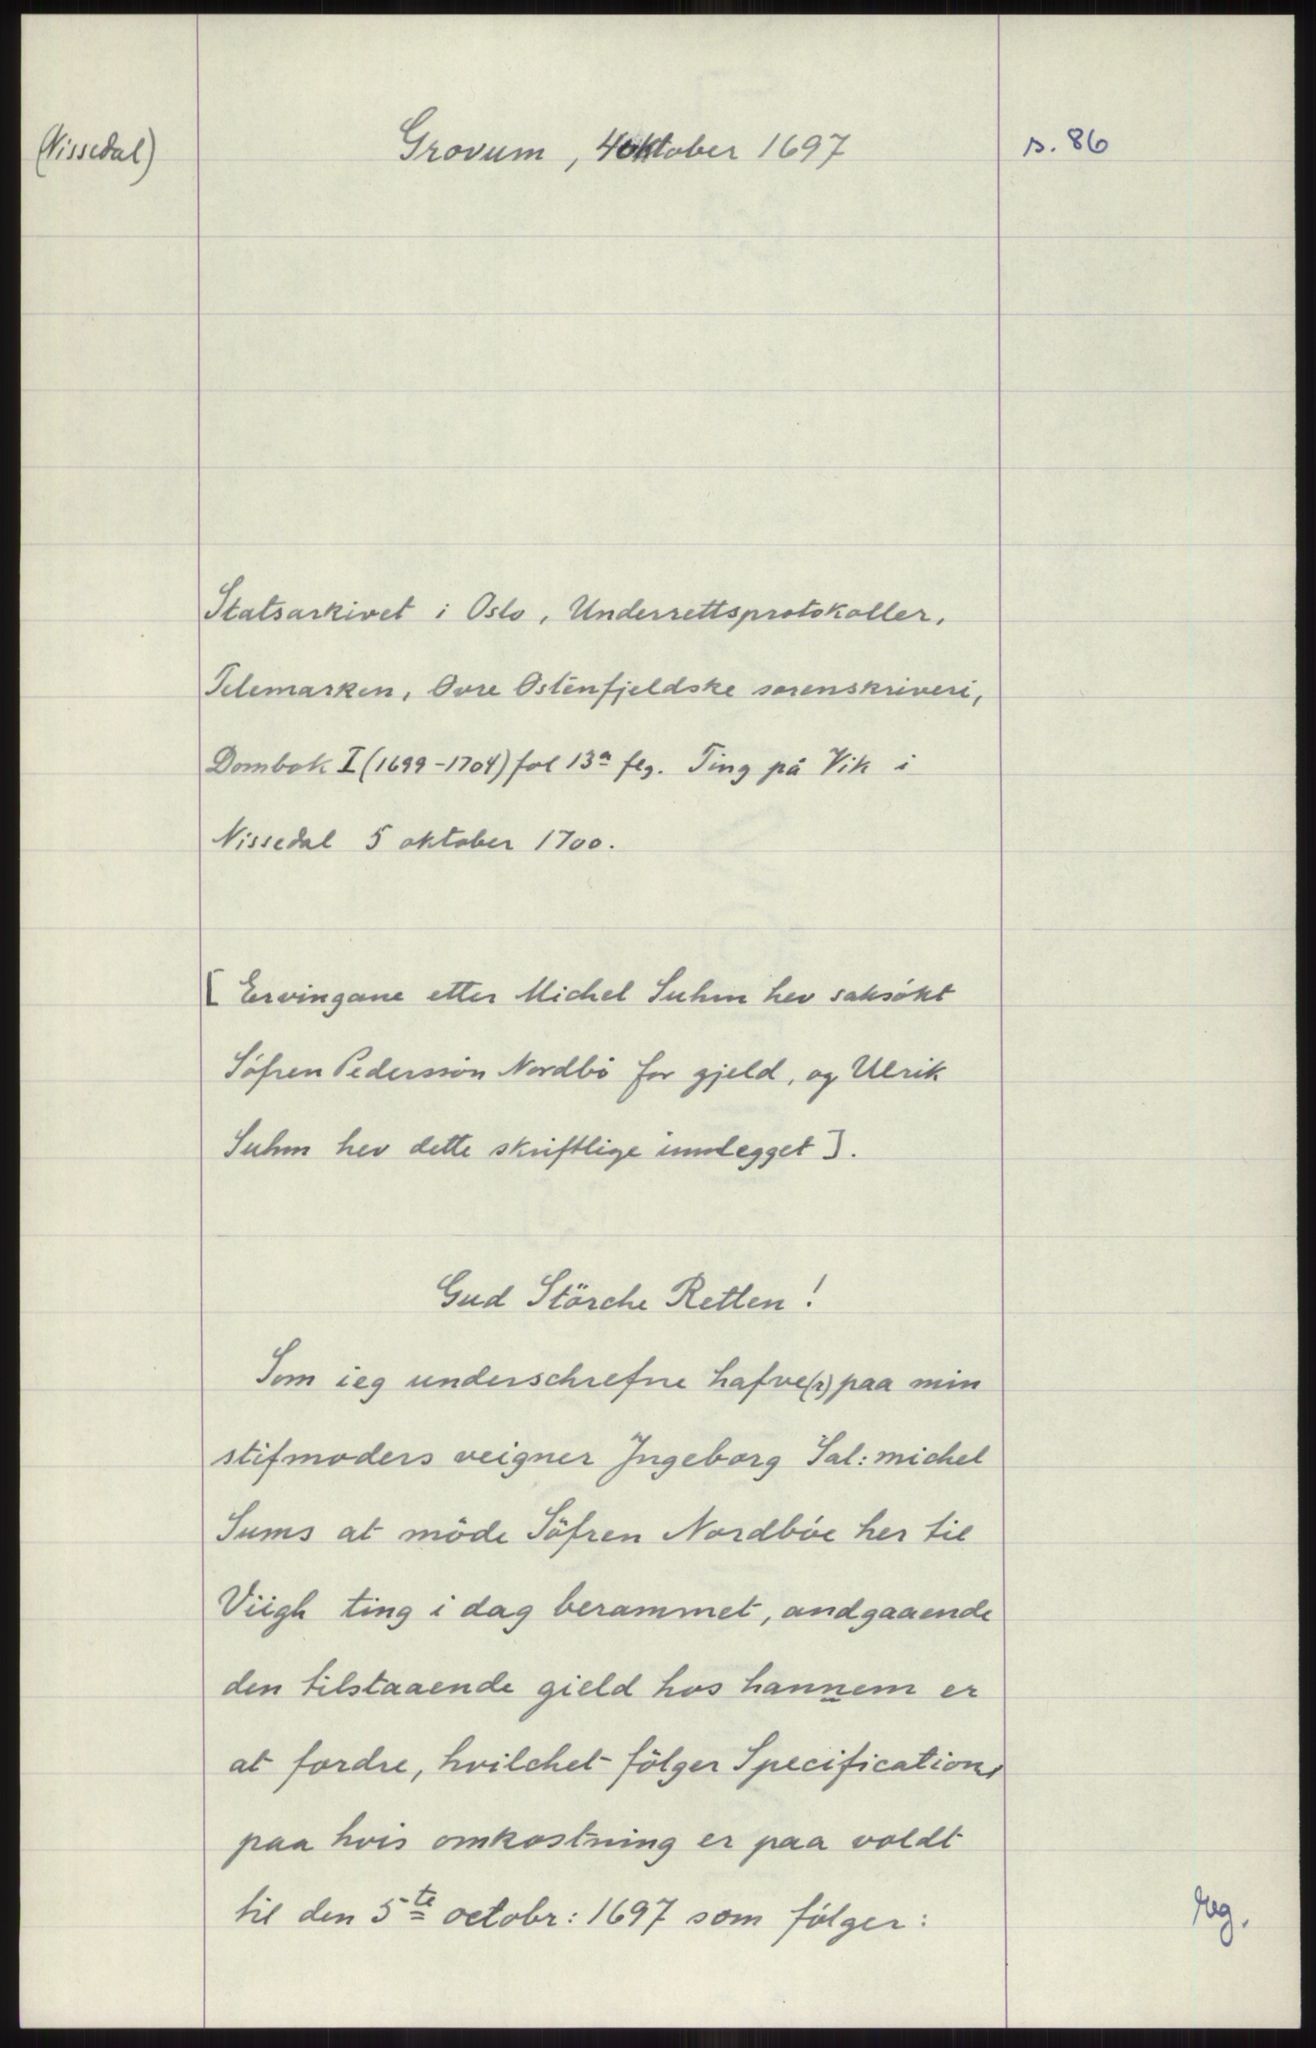 (Nissedal)
Grovum, 4 oktober 1697
s. 86
Statsarkivet i Oslo, Underrettsprotokoller,
Telemarken, Øvre Østenfjeldske sorenskriveri,
Dombok I (1699-1704) fol 13a flg. Ting på Vik i
Nissedal 5 oktober 1700.
[Ervingane etter Michel Suhm hev saksökt
Söfren Pederssön Nordbö for gjeld, og Ulrik
Suhm hev dette skriftlige innlegget].
Gud Störche Retten!
Som ieg underschrefne hafve(r) paa min
stifmoders veigner Jngeborg Sal: michel
Sums at möde Söfren Nordböe her til
Viigh ting i dag berammet, andgaaende
den tilstaaende gield hos hannem er
at fordre, hvilchet fölger Specifications
paa hvis omkostning er paa voldt
til den 5te octobr: 1697 som fölger:
reg.